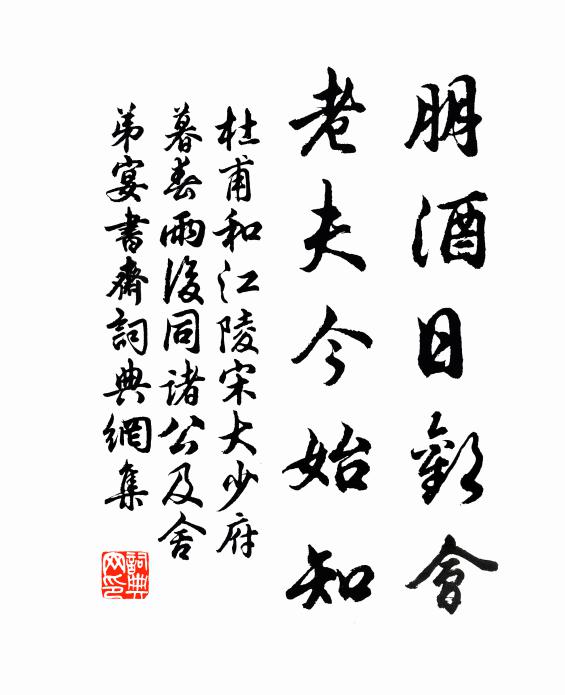 朋酒日歡會
老夫今始知
杜甫和江陵宋大少府
暮春雨後同諸公及舍
弟宴書齋詞典網集
詞典
网印